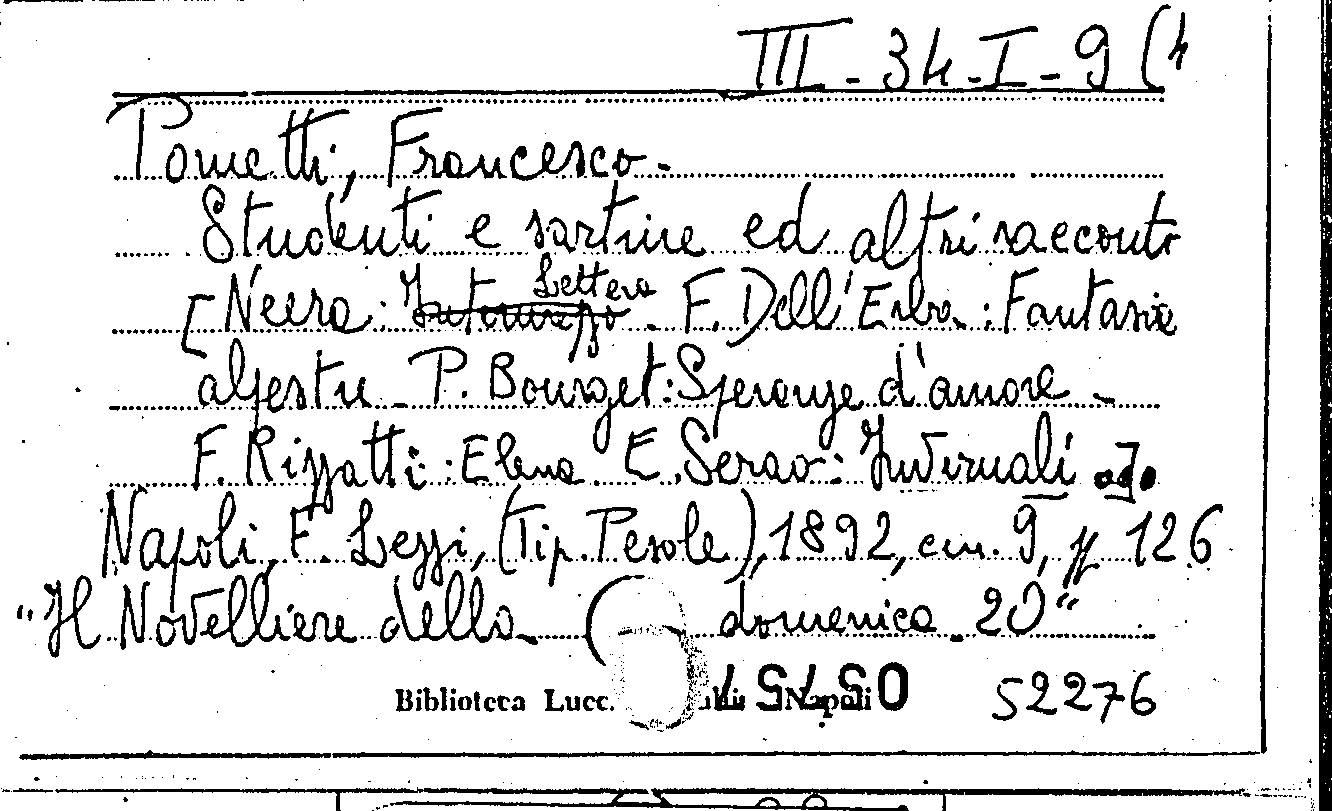 III - 34 - I - 9 (4
Pometti, Francesco -
Studenti e sartine ed altri racconti
[Neera: Lettera - F. Dell'Erba: Fantasia
alpestre - P. Bourget: Speranze d'amore -
F. Rizzatti: Elena E. Serao: Invernali ]
Napoli, F. Lezzi, (Tip. Pesole), 1892, cm. 9, pp 126
"Il Novelliere della domenica - 20"
Biblioteca Lucc. Napoli 52276